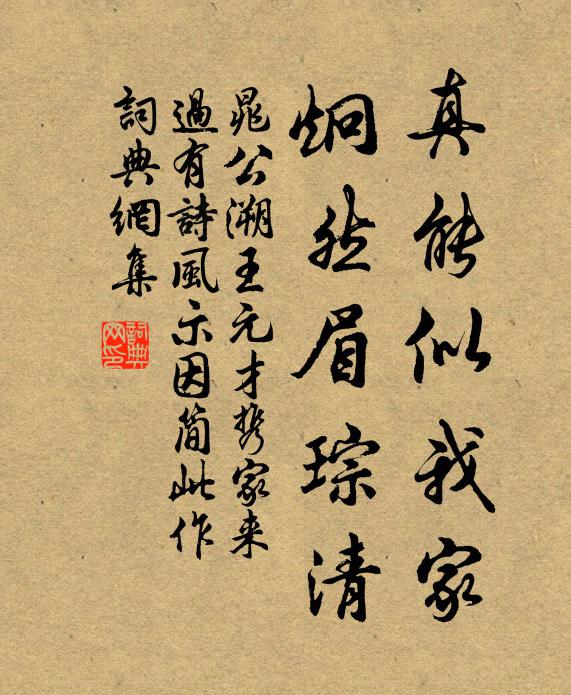 真能似我家
炯然眉琮清
晁公溯王元才携家来
過有詩風示因简此作
詞典網集
詞典网印